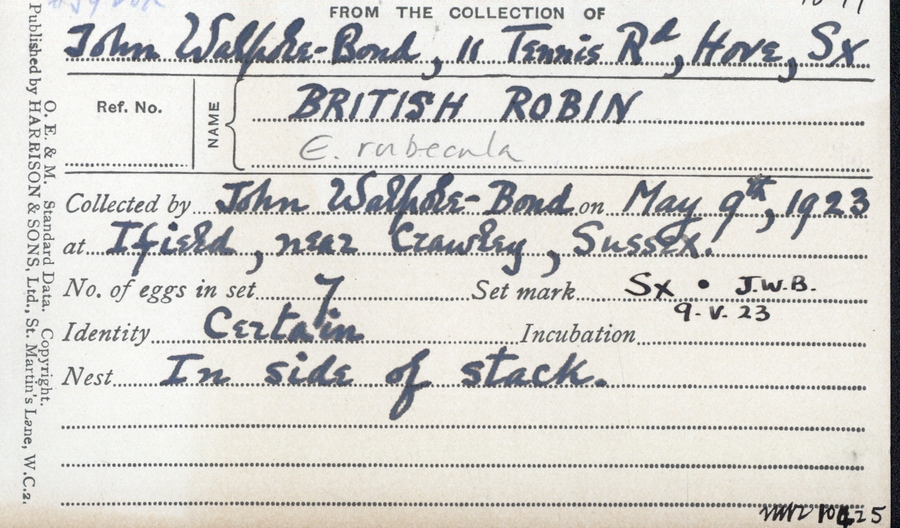 FROM THE COLLECTION OF
John Walpole-Bond, 11 Tennis Rd, Hove, Sx
Ref. No.
NAME
BRITISH ROBIN
E. rubecula
Collected by John Walpole-Bond on May 9th, 1923
at Ifield, near Crawley, Sussex.
No. of eggs in set 7 Set mark Sx • J.W.B.
9-V.23
Identity Certain Incubation
Nest In side of stack.
O. E. & M. Standard Data. Copyright.
Published by HARRISON & SONS, Ltd., St. Martin's Lane, W.C.2.